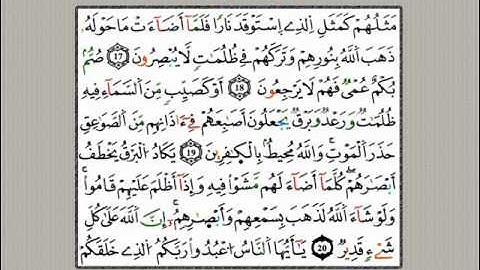 مَثَلُهُمْ كَمَثَلِ اِلذِے اِسْتَوْقَدَ نَاراٗ فَلَمَّآ أَضَآءَتْ مَا حَوْلَهُۥ
ذَهَبَ اَللَّهُ بِنُورِهِمْ وَتَرَكَهُمْ فِے ظُلُمَٰتٖ لَّا يُبْصِرُونَ 17 صُمُّۢ
بُكْمٌ عُمْيٞ فَهُمْ لَا يَرْجِعُونَ 18 أَوْ كَصَيِّبٖ مِّنَ اَلسَّمَآءِ فِيهِ
ظُلُمَٰتٞ وَرَعْدٞ وَبَرْقٞ يَجْعَلُونَ أَصَٰبِعَهُمْ فِےٓ ءَاذَانِهِم مِّنَ اَلصَّوَٰعِقِ
حَذَرَ اَلْمَوْتِۖ وَاللَّهُ مُحِيطُۢ بِالْكٰ۪فِرِينَ 19 يَكَادُ اُلْبَرْقُ يَخْطَفُ
أَبْصَٰرَهُمْۖ كُلَّمَآ أَضَآءَ لَهُم مَّشَوْاْ فِيهِ وَإِذَآ أَظْلَمَ عَلَيْهِمْ قَامُواْۖ
وَلَوْ شَآءَ اَللَّهُ لَذَهَبَ بِسَمْعِهِمْ وَأَبْصٰ۪رِهِمْۖ إِنَّ اَللَّهَ عَلَىٰ كُلِّ
شَےْءٖ قَدِيرٞۖ 20 يَٰٓأَيُّهَا اَلنَّاسُ اُعْبُدُواْ رَبَّكُمُ اُلذِے خَلَقَكُمْ